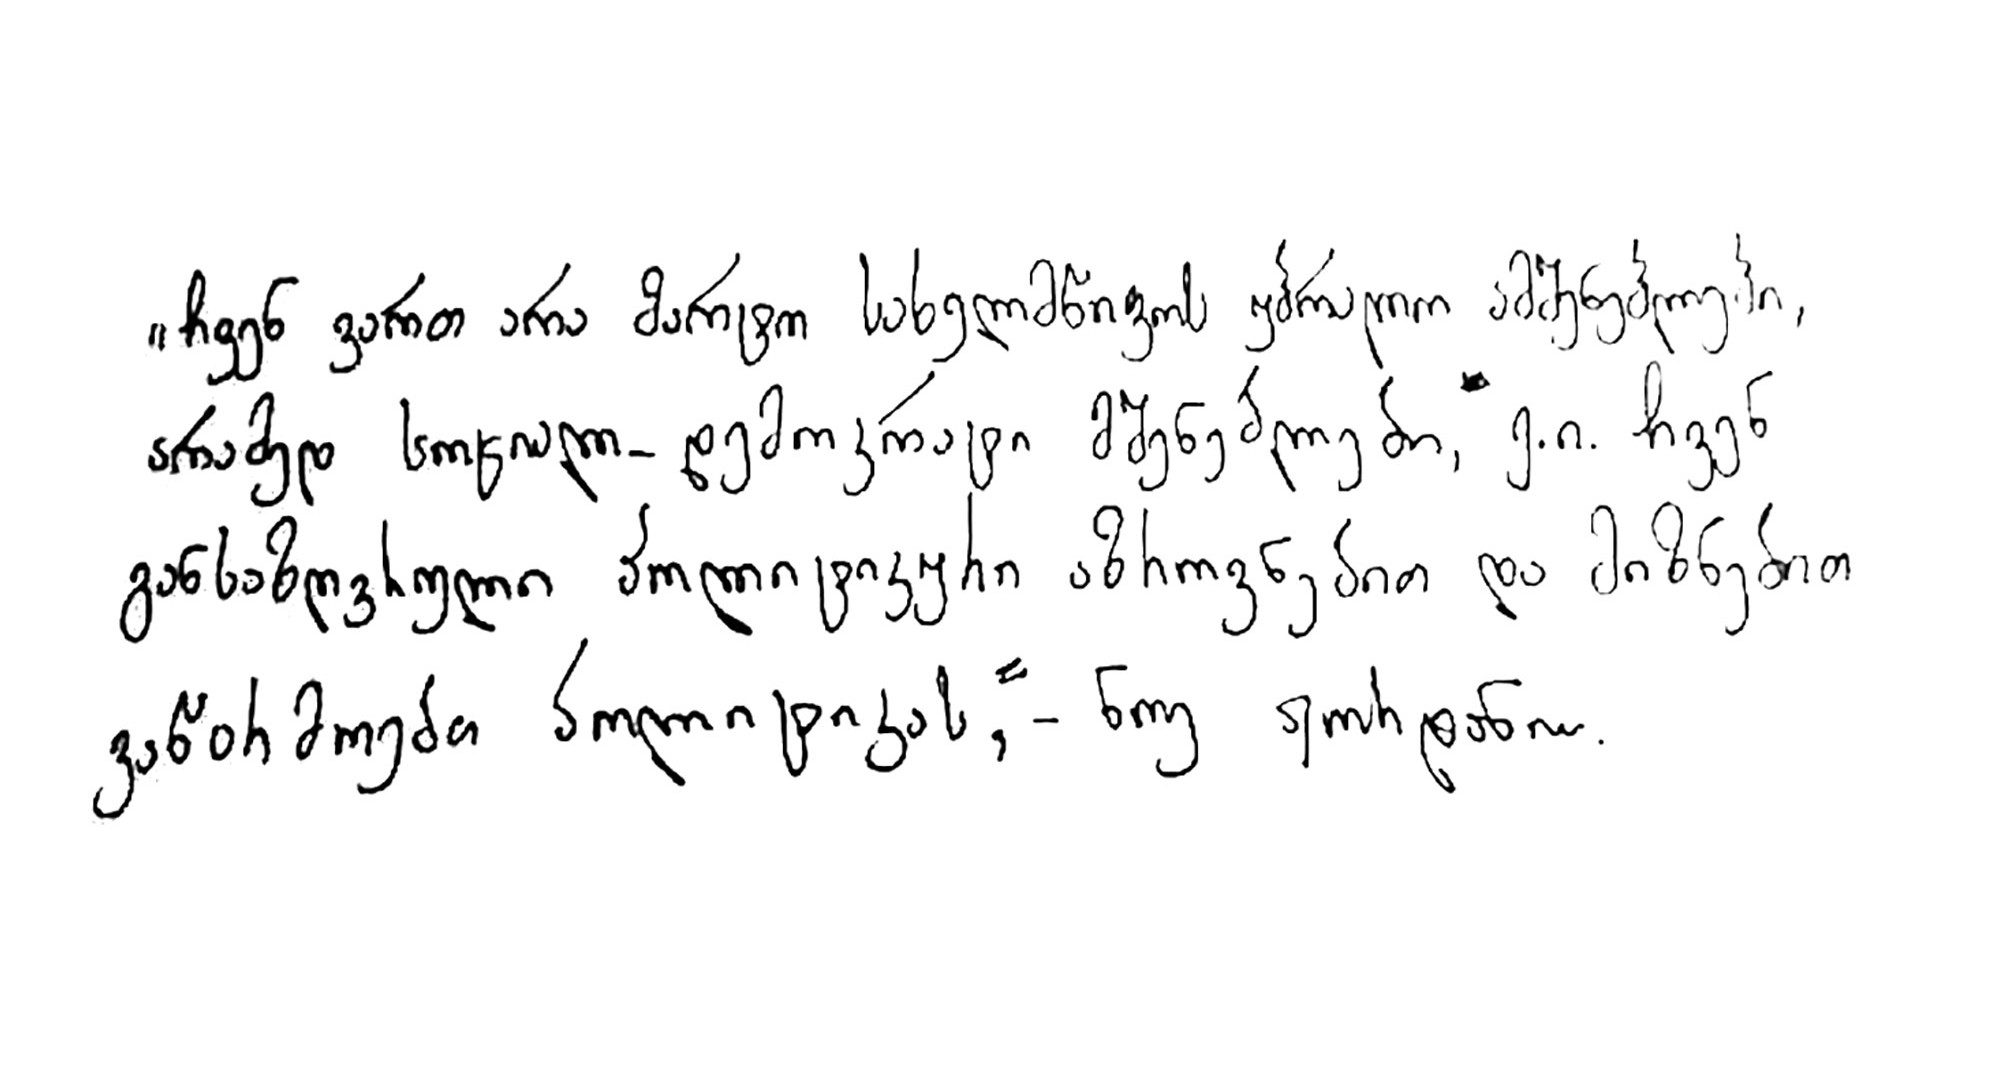 „ჩვენ ვართ არა მარტო სახელმწიფოს უბრალო ამშენებლები,
არამედ სოციალ-დემოკრატი მშენებლები,“ ე.ი. ჩვენ
განსაზღვრული პოლიტიკური აზროვნებით და მიზნებით
ვაწარმოებთ პოლიტიკას,“ – ნოე ჟორდანია.